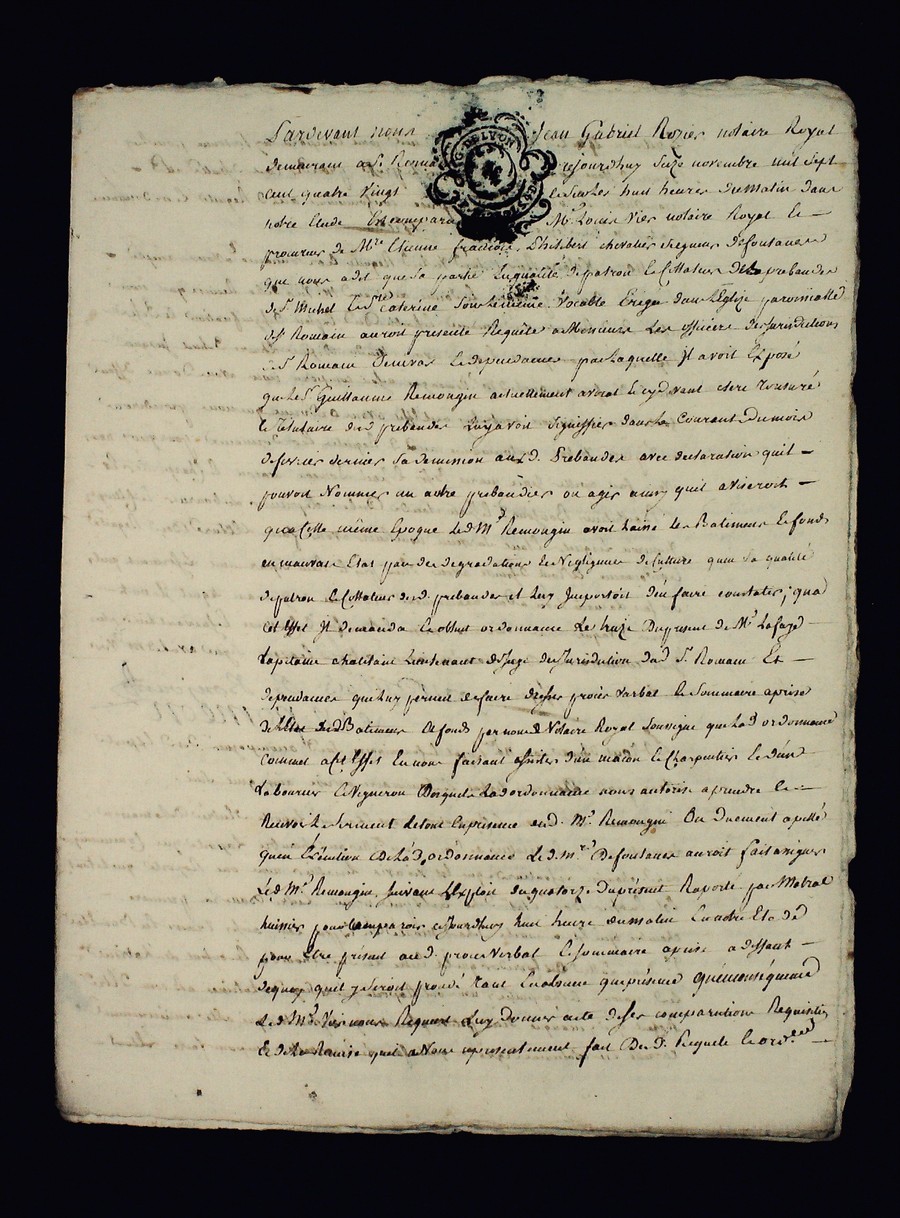 Pardevant nous Jean Gabriel Rozier notaire Royal
demeurant a St. Romain cejourdhuy seize novembre mil sept
cent quatre vingt le sur les huit heures du matin dans
notre Etude Est comparu Me. Louis Vier notaire Royal le
procureur de Mre Etienne françois Philibert chevalier seigneur defontanes
que nous a dit que sa partie En qualité de patron Collateur des prebandes
de St. Michel Et Ste Caterine sous le même Vocable Erigé dans l'Eglise paroissialle
de St Romain auroit presenté Requête a Messieurs Les officiers de jurisdiction
de St. Romain et dependances par laquelle jl avoit Exposé
que le Sr. Guillaume Remongin actuellement avocat Et cydevant clerc Tonsuré
le Titulaire desd prebandes Luy avoit signiffier dans le Courant Du mois
defevrier dernier sa demission auxd. Prebandes avec declaration quil
pouvoit Nommer un autre prebandier ou agir ainsy quil aviseroit
qua Cette même Epoque Led. Mr Remongin avoit laissé Les Batiments Et fonds
en mauvais Etat par des degradations Et Negligence de Culture quen sa qualité
de patron Collateur desd. prebandes jl Luy Jmportoit d'en faire constater; qua
Cet Effet Jl demanda Et obtint ordonnance Le treize Du present de Mr. Lafaye
Capitaine chatelain Lieutenant de Juge de Jurisdiction dud St. Romain Et
dependances que Luy permit de faire dresser procès verbal Et Sommaire aprise
de l'Etat desd Batiments Et fonds par nousd Notaire Royal Soussigné que Lad ordonnance
Commet a Cet Effet En nous faisant assister d'un maçon Et Charpentier Et d'un
Laboureur Et Vigneron Desquels Lad ordonnance nous autorise a prendre Et
Recevoir Le Serment Le tout En presence dud. Mr. Remongin Ou Duement apellé
quen Exécution de Lad. ordonnance Led. mre. Defontanes auroit fait assigner
Led Mr. Remongin suivant L'Exploit du quatorze Du présent Raporté par Matral
huissier pour comparoir cejourdhuy huit heure du matin En notre Etude
pour Etre present aud. procès Verbal Et sommaire aprise a deffaut
dequoy quil y seroit procédé tant En absence que présence quenconséquence
Led Mr. Vier nous Requiert Luy Donner acte de ses comparution Requisition
Et de La Remise quil a Nous a presentement fait Des d. Requete Et ordce